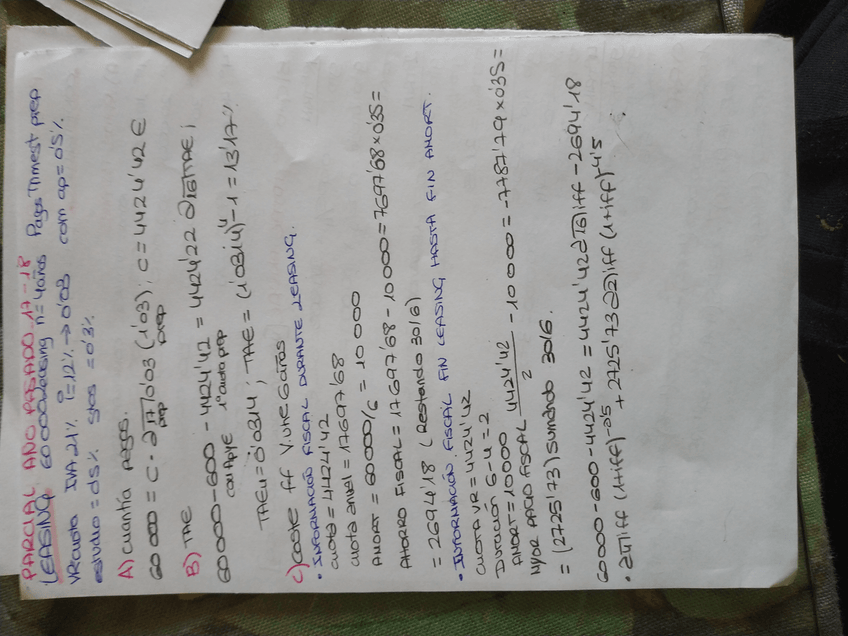 PARCIAL AÑO PASADO 17-18
LEASING 60000 leasing n=4años Pagos Trimest prep
VR cuota IVA 21% i=12% → 0'03 com ap=0'5%
estudio=0'5% gtos=0'3%
A) Cuantía pagos.
60 000 = C · a17|0'03 (1'03); C = 4424'42 €
prep prep
B) TAE
60000-600-4424'42 = 4424'22 a16|TAE;
com Ap y E 1ª cuota prep
TAE4=0'0314; TAE = (1'0314)⁴-1 = 13'17%
C) Coste ff V. útil 6 años
• INFORMACIÓN FISCAL DURANTE LEASING.
Cuota = 4424'42
Cuota anual = 17697'68
AMORT = 60000/6 = 10 000
AHORRO FISCAL = 17697'68 - 10000 = 7697'68 x 0'35 =
= 2694'18 (Restando 30/6)
• INFORMACIÓN FISCAL FIN LEASING HASTA FIN AMORT.
CUOTA VR = 4424'42
Duración 6-4=2
AMORT = 10000
MYOR PAGO FISCAL 4424'42/2 - 10000 = -7787'79 x 0'35 =
= (2725'73) sumando 30/6.
60000-600-4424'42 = 4424'42 a16|iff - 2694'18
• a4|iff (1+iff)^-0'5 + 2725'73 a2|iff (1+iff)^-4'5